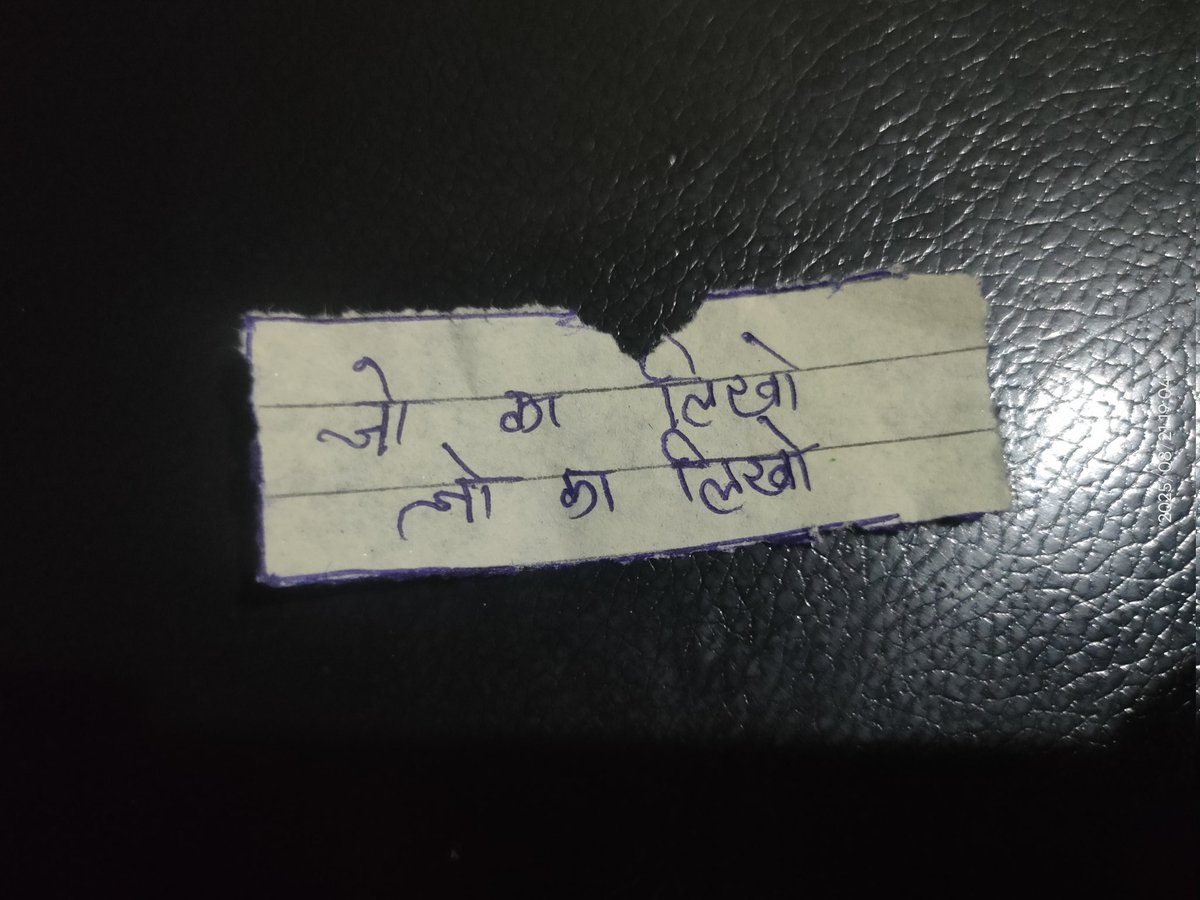 जो का लिखो
लो का लिखो
2025/08/21 19:04